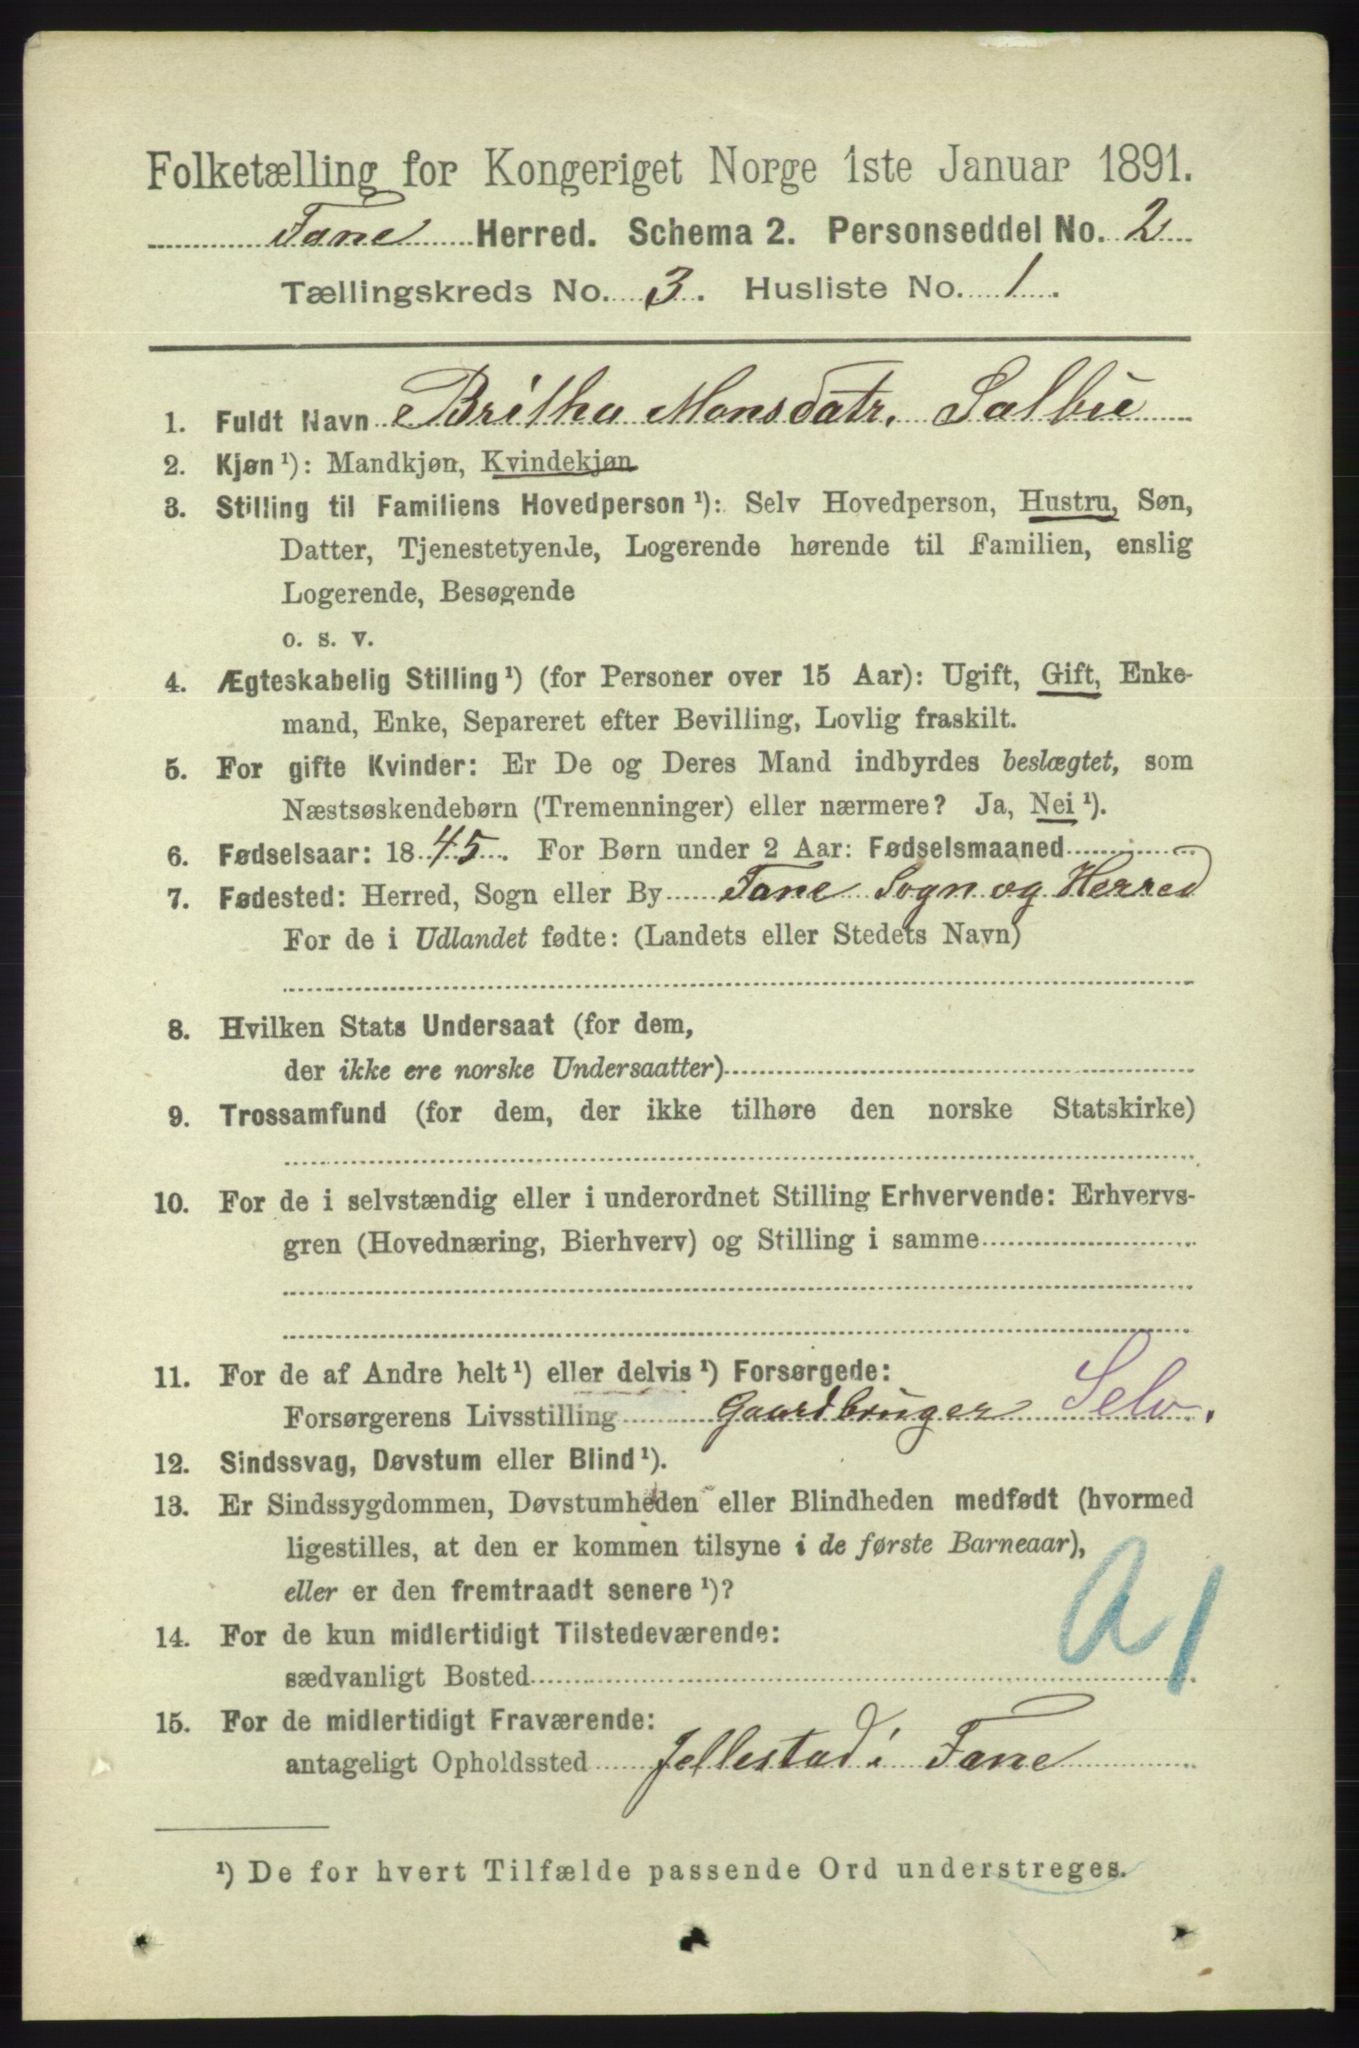 Folketælling for Kongeriget Norge 1ste Januar 1891.
Fane Herred. Schema 2. Personseddel No. 2
Tællingskreds No. 3. Husliste No. 1.
1. Fuldt Navn Britha Monsdatr. Salbu
2. Kjøn ¹): Mandkjøn, Kvindekjøn
3. Stilling til Familiens Hovedperson ¹): Selv Hovedperson, Hustru, Søn,
Datter, Tjenestetyende, Logerende hørende til Familien, enslig
Logerende, Besøgende
o. s. v.
4. Ægteskabelig Stilling ¹) (for Personer over 15 Aar): Ugift, Gift, Enke-
mand, Enke, Separeret efter Bevilling, Lovlig fraskilt.
5. For gifte Kvinder: Er De og Deres Mand indbyrdes beslægtet, som
Næstsøskendebørn (Tremenninger) eller nærmere? Ja, Nei ¹).
6. Fødselsaar: 1845. For Børn under 2 Aar: Fødselsmaaned
7. Fødested: Herred, Sogn eller By Fane Sogn og Herred
For de i Udlandet fødte: (Landets eller Stedets Navn)
8. Hvilken Stats Undersaat (for dem,
der ikke ere norske Undersaatter)
9. Trossamfund (for dem, der ikke tilhøre den norske Statskirke)
10. For de i selvstændig eller i underordnet Stilling Erhvervende: Erhvervs-
gren (Hovednæring, Bierhverv) og Stilling i samme
11. For de af Andre helt ¹) eller delvis ¹) Forsørgede:
Forsørgerens Livsstilling Gaardbruger Selv.
12. Sindssvag, Døvstum eller Blind ¹).
13. Er Sindssygdommen, Døvstumheden eller Blindheden medfødt (hvormed
ligestilles, at den er kommen tilsyne i de første Barneaar),
eller er den fremtraadt senere ¹)?
A1
14. For de kun midlertidigt Tilstedeværende:
sædvanligt Bosted
15. For de midlertidigt Fraværende:
antageligt Opholdssted Jellestad i Fane
¹) De for hvert Tilfælde passende Ord understreges.